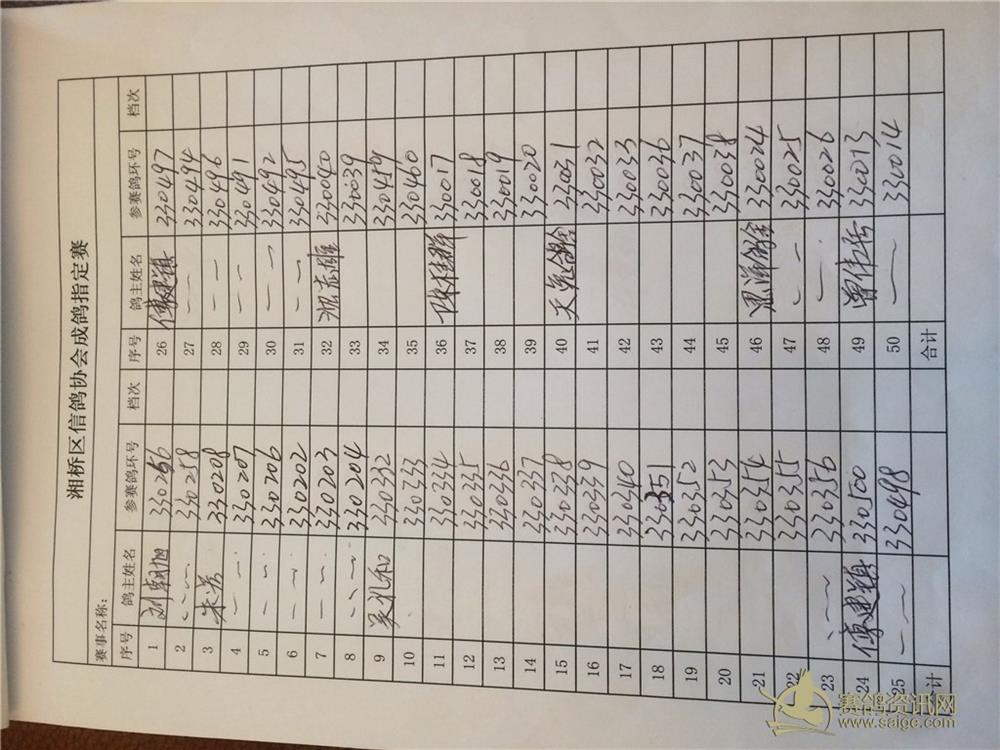 湘桥区信鸽协会成鸽指定赛
赛事名称：
序号 鸽主姓名 参赛鸽环号 档次 序号 鸽主姓名 参赛鸽环号 档次
1 刘朝旭 330256 26 傅建镇 330497
2 330258 27 330494
3 朱芳 330208 28 330496
4 330207 29 330491
5 330206 30 330492
6 330202 31 330495
7 330203 32 沈志雄 330040
8 330204 33 330039
9 吴礼和 330332 34 330459
10 330333 35 330460
11 330334 36 330017
12 330335 37 330018
13 330336 38 330019
14 330337 39 330020
15 330338 40 天宠鸽舍 330031
16 330339 41 330032
17 330340 42 330033
18 330351 43 330036
19 330352 44 330037
20 330353 45 330038
21 330354 46 鸽舍 330024
22 330355 47 330025
23 330356 48 330026
24 傅建镇 330500 49 330013
25 330498 50 330014
合计 合计
赛鸽资讯网
www.saige.com